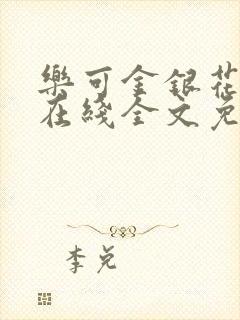 樂可金銀花
在綫全文免
李兌